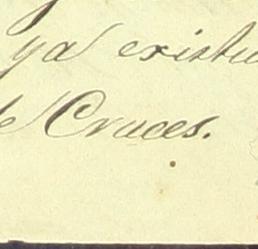 ya existia
de Cruces.